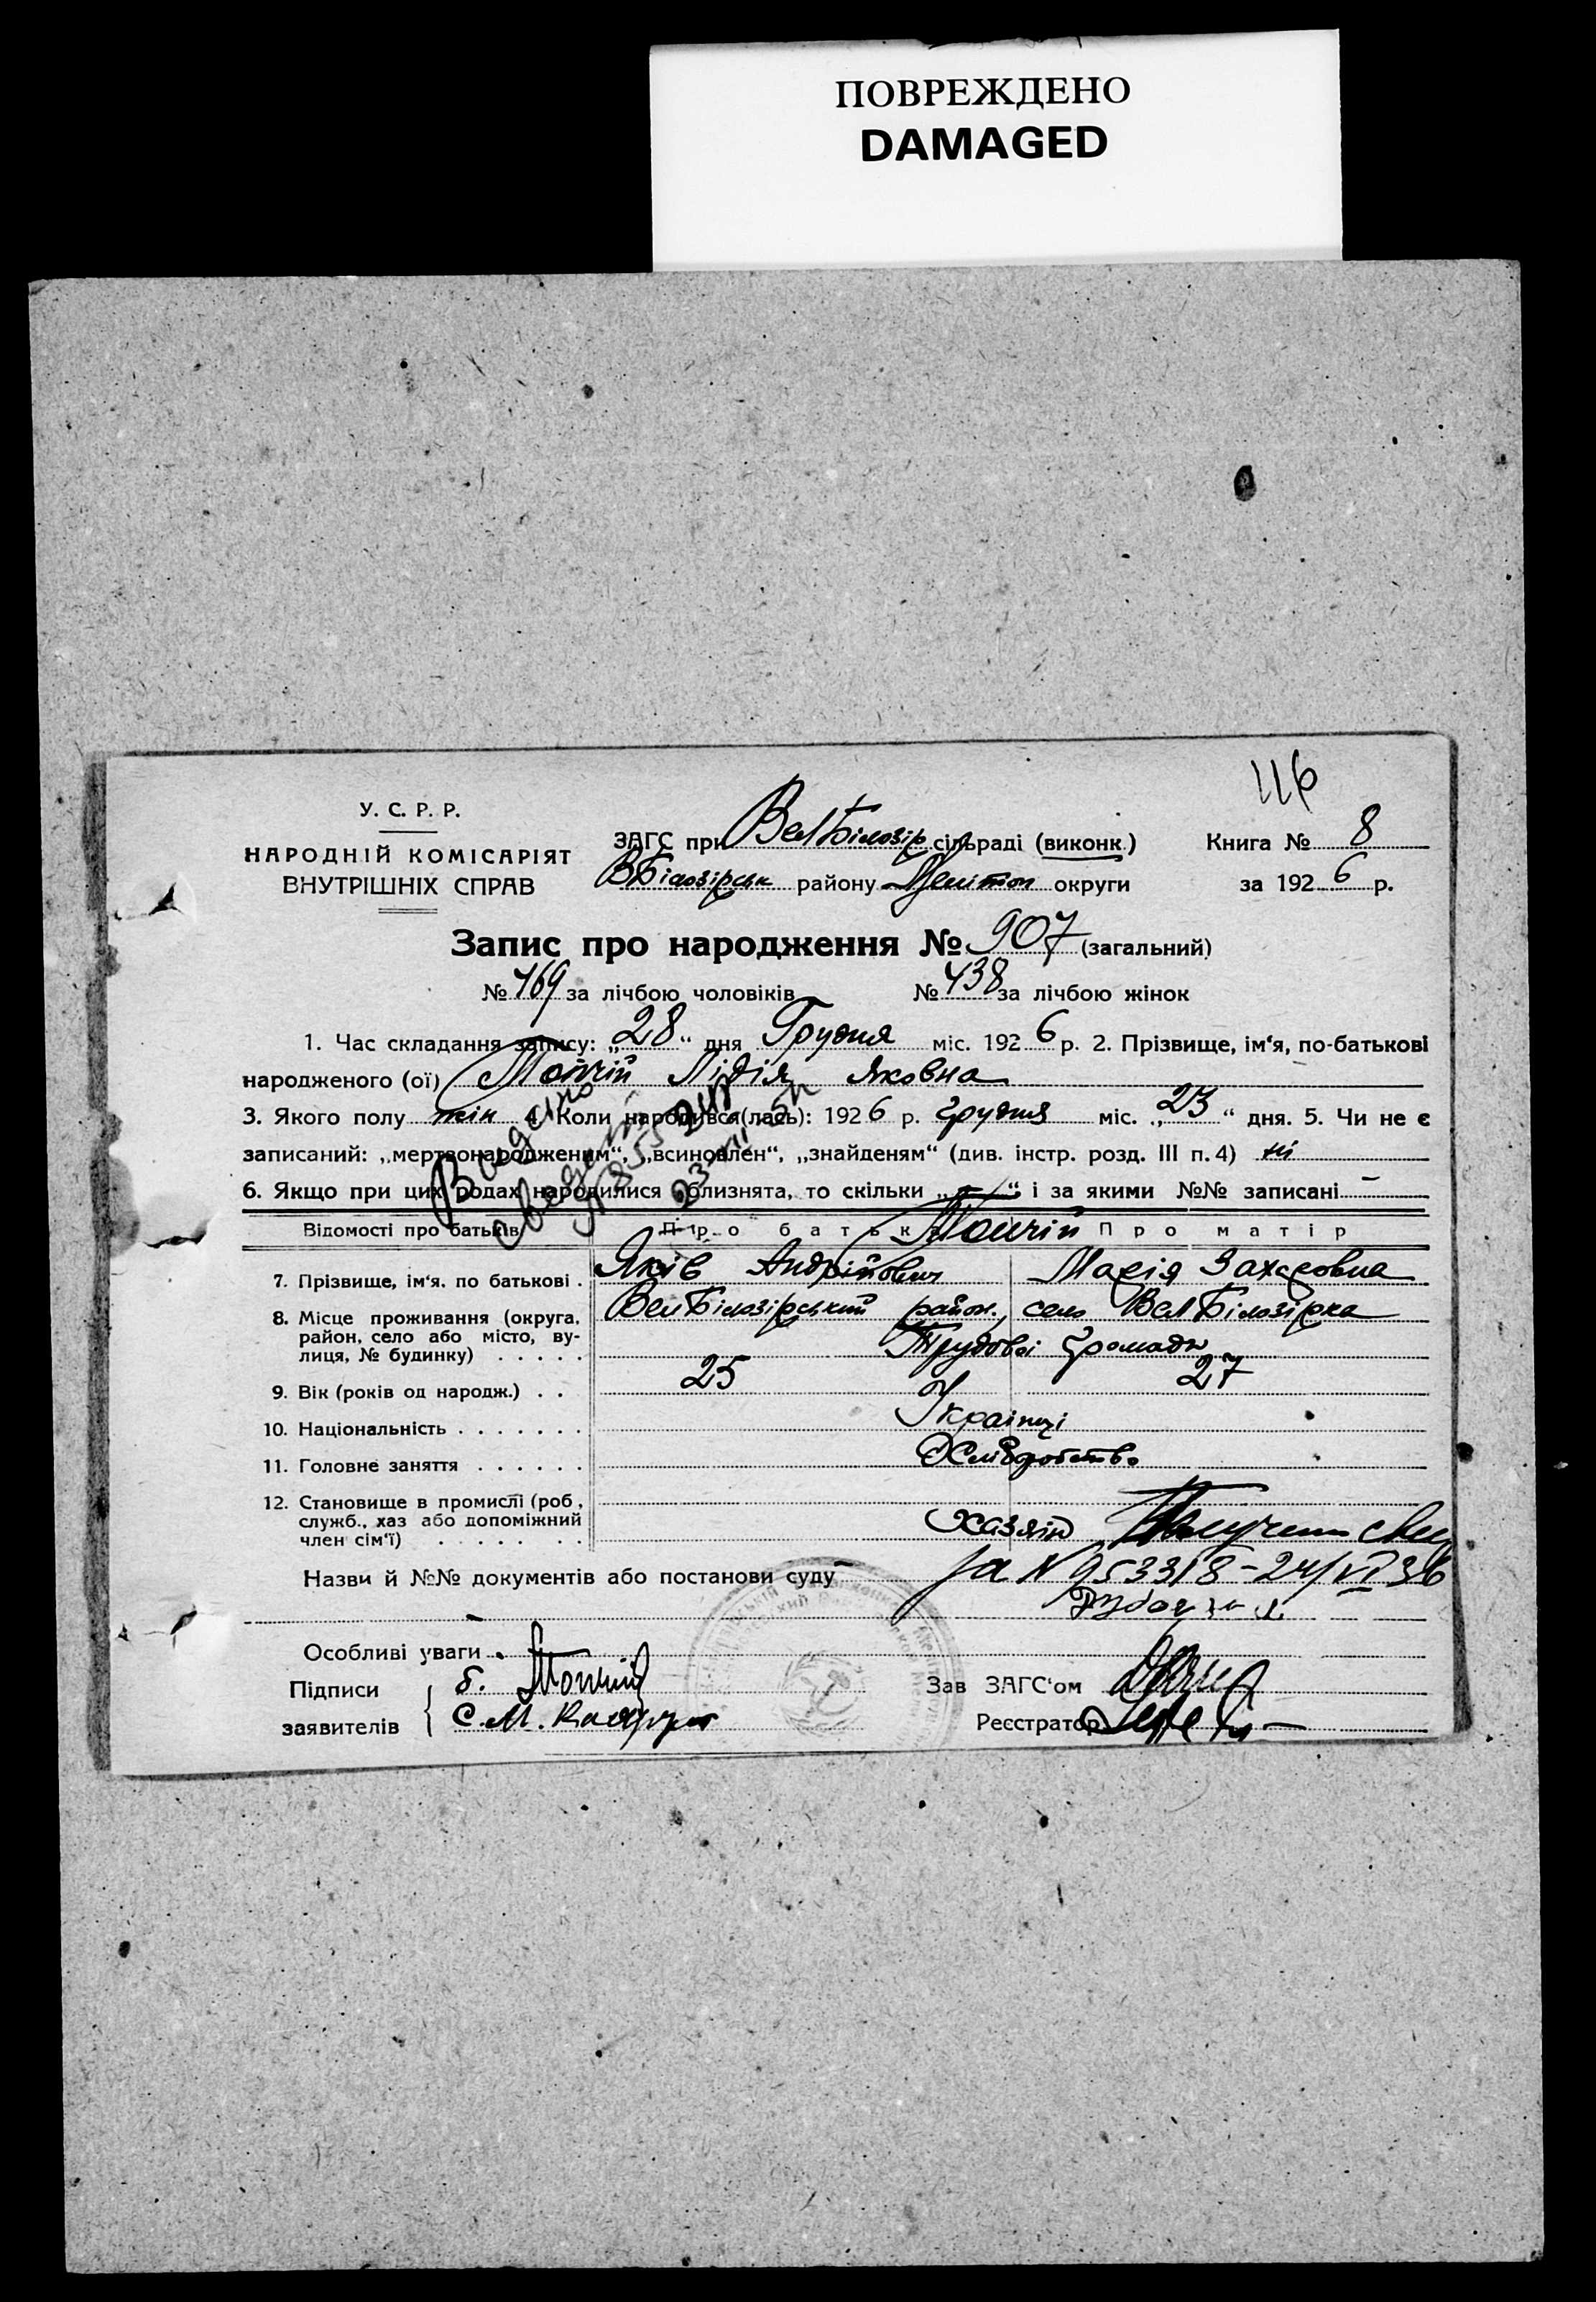 ПОВРЕЖДЕНО
DAMAGED
116
У. С. Р. Р.
НАРОДНІЙ КОМІСАРІЯТ
ВНУТРІШНІХ СПРАВ
ЗАГС при ВелБілозір сільраді (виконк.)
ВБілозірськ району Мелітоп округи
Книга № 8
за 1926 р.
Запис про народження № 907 (загальний)
№ 469 за лічбою чоловіків № 438 за лічбою жінок
1. Час складання запису: „28“ дня Грудня міс. 1926 р. 2. Прізвище, ім‘я, по-батькові
народженого (ої) Лідія Яковна
3. Якого полу жін 4. Коли народився(лась): 1926 р. грудня міс. „23“ дня. 5. Чи не є
записаний: „мертвонародженим“, „всиновлен“, „знайденям“ (див. інстр. розд. III п. 4) ні
6. Якщо при цих родах народилися близнята, то скільки „—“ і за якими №№ записані —
Відомості про батьків Про батька Про матір
7. Прізвище, ім‘я, по батькові . Яків Андрійович Марія Захаровна
8. Місце проживання (округа, ВелБілозірський район., село ВелБілозірка
район, село або місто, ву-
лиця, № будинку) . . . . . Трудової громади
9. Вік (років од народж.) . . 25 27
10. Національність . . . . . . . Українці
11. Головне заняття . . . . . . Хліборобство
12. Становище в промислі (роб.,
служб., хаз або допоміжний хазяїн
член сім‘ї) . . . . . . .
Назви й №№ документів або постанови суду — за № 953318 - 24/VI 36
Особливі уваги
Підписи б.
заявителів С.М.
Зав ЗАГС‘ом
Реєстратор